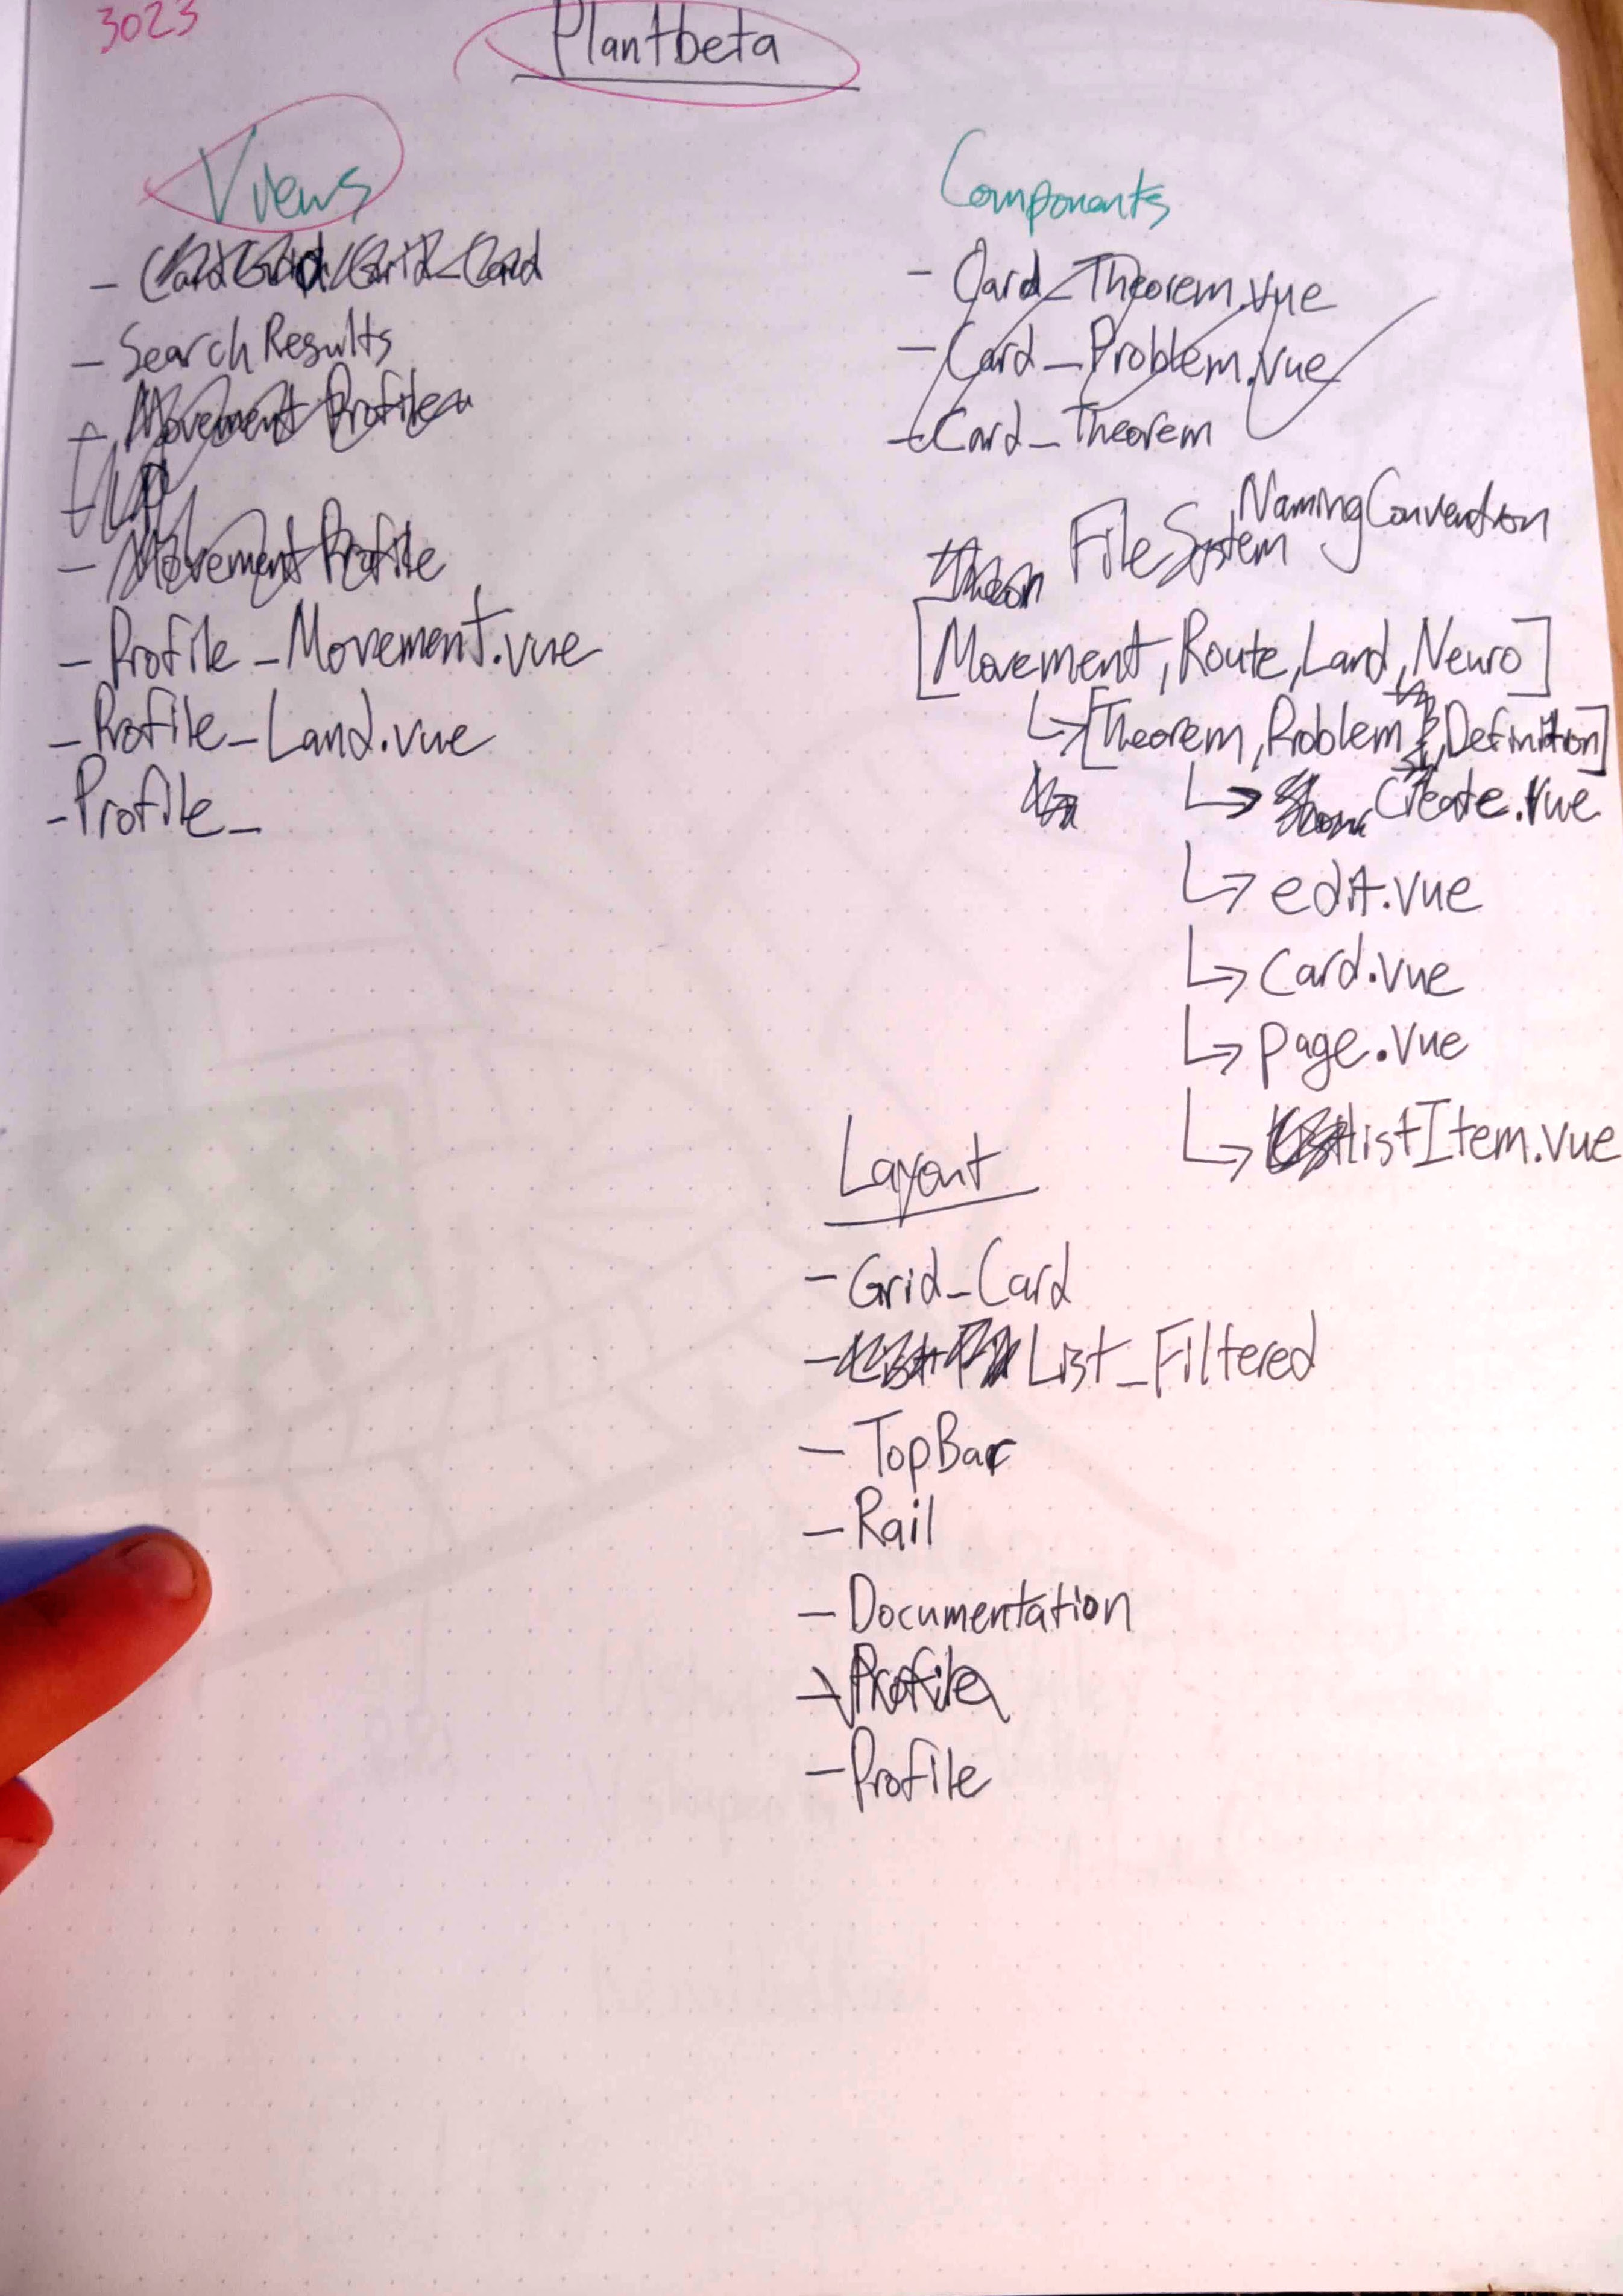 3023
Plantbeta
Views
- CardGrid/Grid_Card
- SearchResults
- Movement Profile
- Movement Profile
- Profile_Movement.vue
- Profile_Land.vue
- Profile_
Components
- Card_Theorem.vue
- Card_Problem.vue
- Card_Theorem
FileSystem NamingConvention
[Movement, Route, Land, Neuro]
↳ [Theorem, Problem, Definition]
↳ Create.vue
↳ edit.vue
↳ Card.vue
↳ page.vue
↳ listItem.vue
Layout
- Grid_Card
- List_Filtered
- TopBar
- Rail
- Documentation
- Profile
- Profile